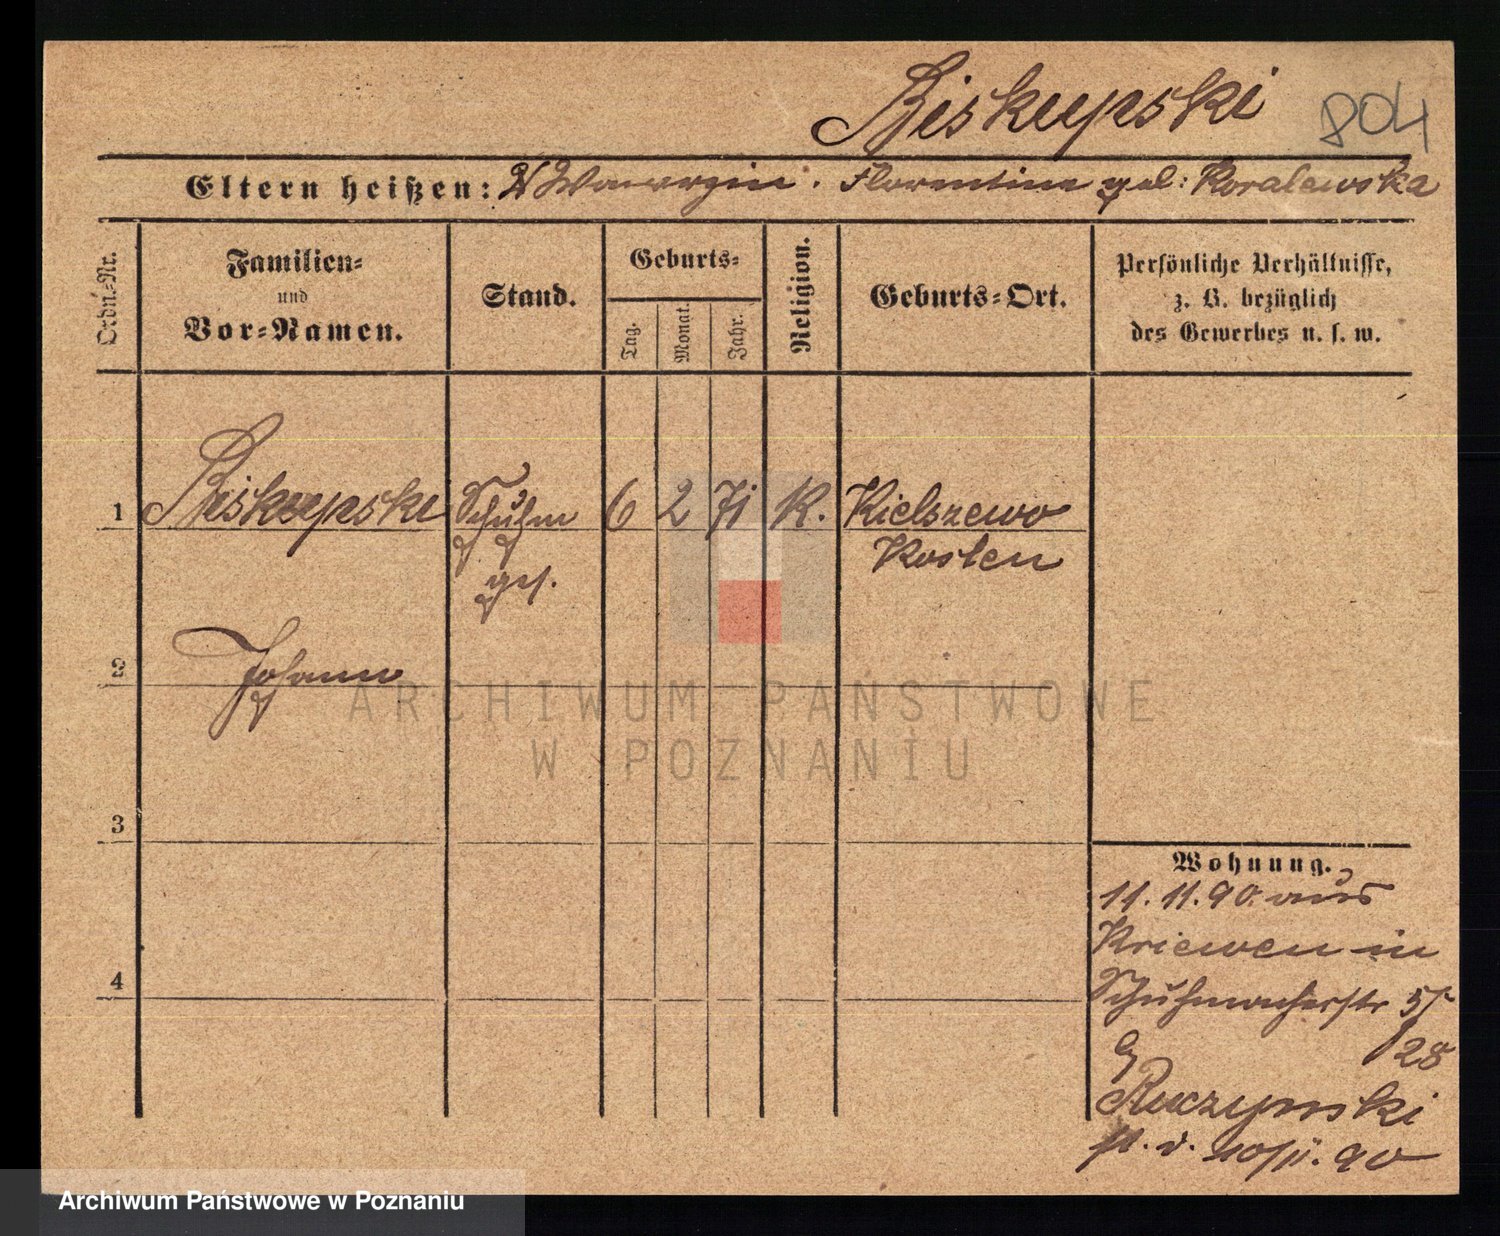 Biskupski 804
Eltern heißen: Wawrzin. Florentine geb: Koralewska
Ordn.-Nr.
Familien-
und
Vor-Namen.
Stand.
Geburts-
Tag.
Monat.
Jahr.
Religion.
Geburts-Ort.
Persönliche Verhältnisse,
z. B. bezüglich
des Gewerbes u. s. w.
1 Biskupski Schuhm 6 2 71 K. Kielszewo
ges. Kosten
2 Johann
3
4
Wohnung.
11. 11. 90. aus
Kriewen in
Schuhmacherstr
28
Ruczynski
90
ARCHIWUM PAŃSTWOWE
W POZNANIU
Archiwum Państwowe w Poznaniu